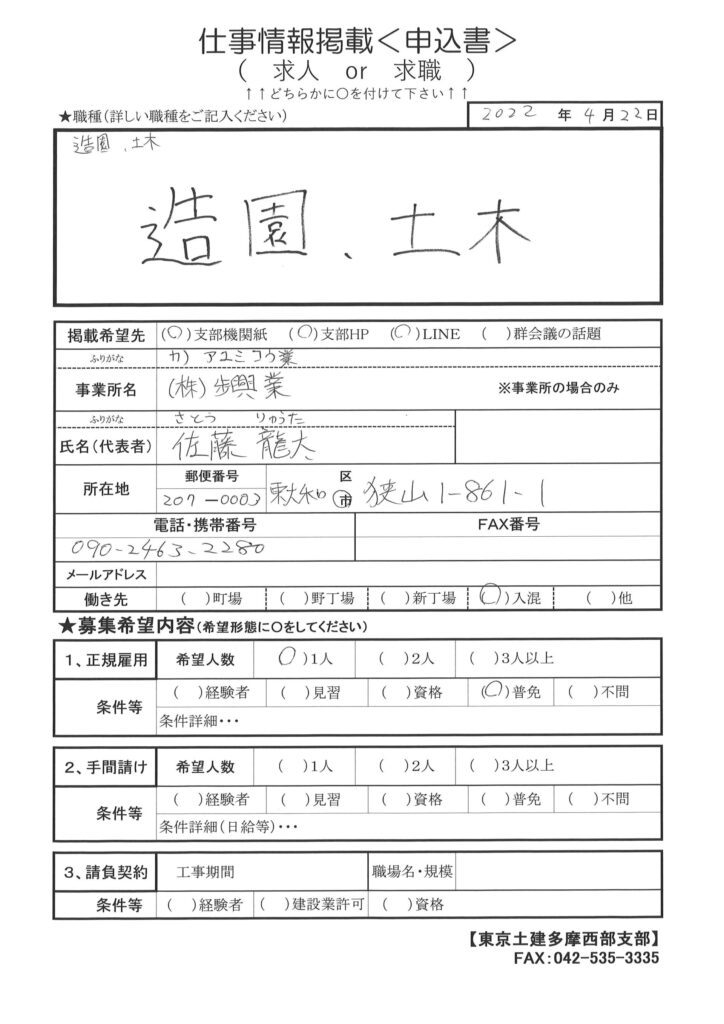 仕事情報掲載<申込書>
( 求人 or 求職 )
↑↑どちらかに○を付けて下さい↑↑
★職種(詳しい職種をご記入ください) 2022 年 4 月 22 日
造園、土木
造園、土木
掲載希望先 (○)支部機関紙 (○)支部HP (○)LINE ( )群会議の話題
ふりがな カ) アユミコウ業
事業所名 (株)歩興業 ※事業所の場合のみ
ふりがな さとう りゅうた
氏名(代表者) 佐藤 龍太
所在地 郵便番号 207-0003 東大和 区 市 狭山1-861-1
電話・携帯番号 FAX番号
090-2463-2280
メールアドレス
働き先 ( )町場 ( )野丁場 ( )新丁場 (○)入混 ( )他
★募集希望内容(希望形態に○をしてください)
1、正規雇用 希望人数 (○)1人 ( )2人 ( )3人以上
条件等 ( )経験者 ( )見習 ( )資格 (○)普免 ( )不問
条件詳細・・・
2、手間請け 希望人数 ( )1人 ( )2人 ( )3人以上
条件等 ( )経験者 ( )見習 ( )資格 ( )普免 ( )不問
条件詳細(日給等)・・・
3、請負契約 工事期間 職場名・規模
条件等 ( )経験者 ( )建設業許可 ( )資格
【東京土建多摩西部支部】
FAX:042-535-3335